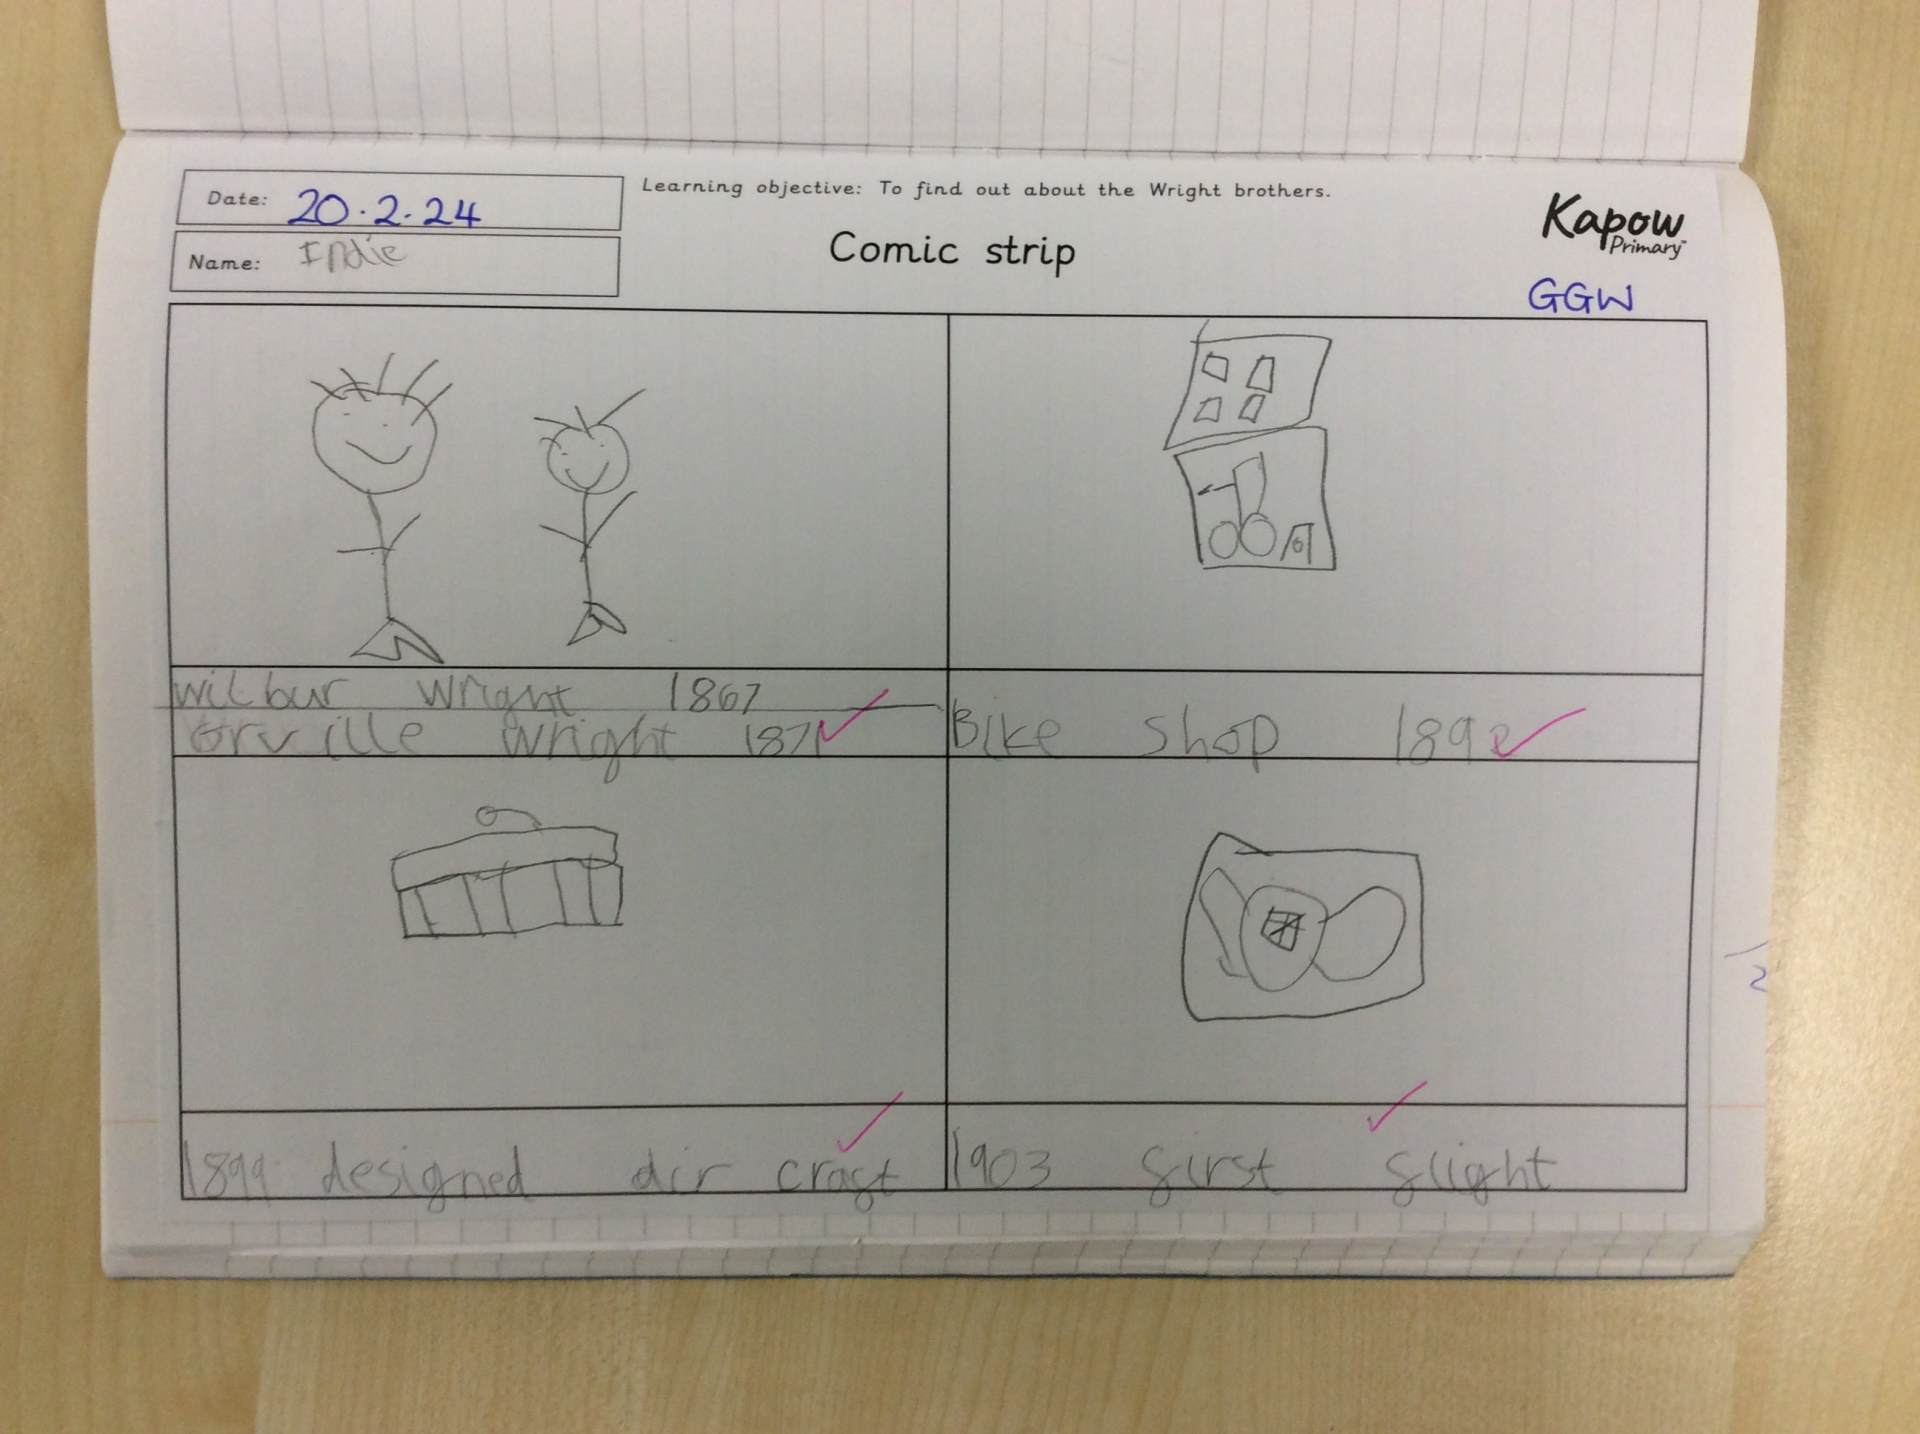 Date: 20.2.24
Learning objective: To find out about the Wright brothers.
Kapow
Primary
Name: Indie
Comic strip
GGW
Wilbur Wright 1867
Orville Wright 1871
Bike shop 1892
1899 designed air craft
1903 first flight